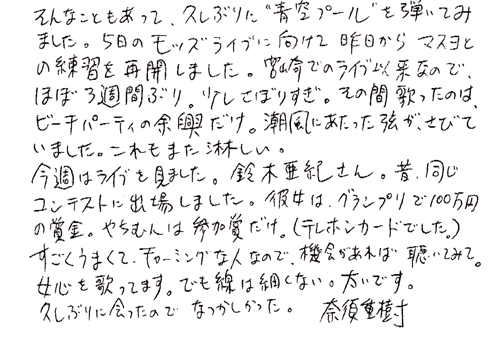 そんなこともあって、久しぶりに"青空プール"を弾いてみ
ました。5日のモッズライブに向けて昨日からマスヨと
の練習を再開しました。宮崎でのライブ以来なので、
ほぼ3週間ぶり。少しさぼりすぎ。その間歌ったのは、
ビーチパーティの余興だけ。潮風にあたった弦が、さびて
いました。これもまた淋しい。
今週はライブを見ました。鈴木亜紀さん。昔、同じ
コンテストに出場しました。彼女は、グランプリで100万円
の賞金。やちむんは参加賞だけ。(テレホンカードでした。)
すごくうまくて、チャーミングな人なので、機会があれば聴いてみて。
女心を歌ってます。でも線は細くない。太いです。
久しぶりに会ったのでなつかしかった。 奈須重樹